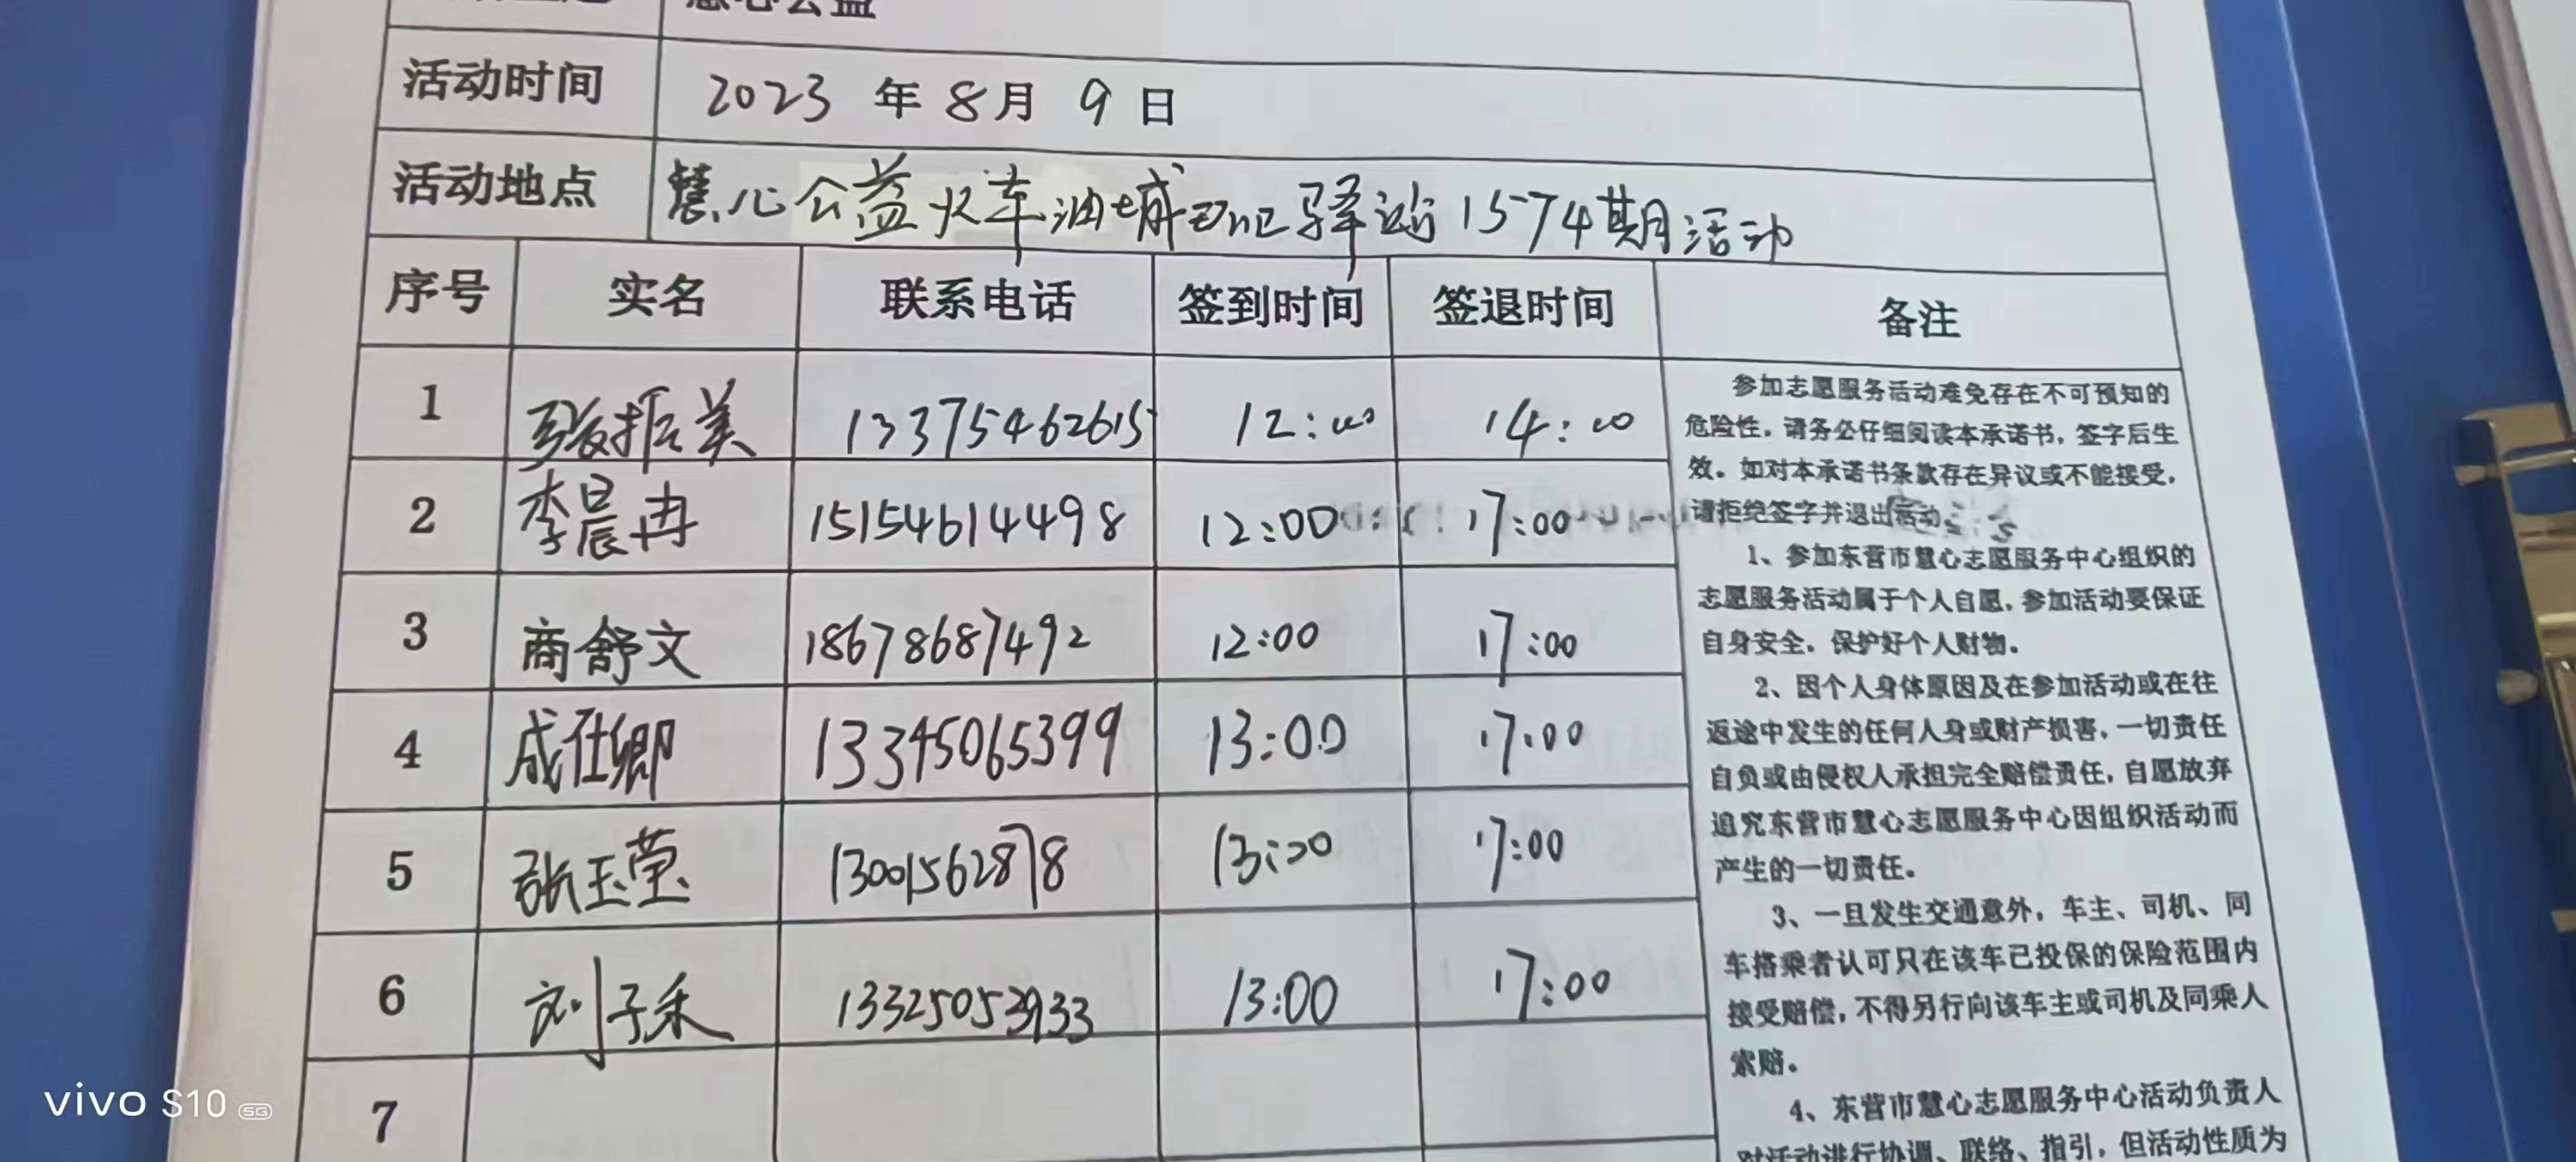 慧心公益
活动时间 2023 年 8 月 9 日
活动地点 慧心公益火车油城 驿站1574期活动
序号 实名 联系电话 签到时间 签退时间 备注
1 振美 13375462615 12:00 14:00
2 李晨冉 15154614498 12:00 17:00
3 商舒文 18678687492 12:00 17:00
4 成仕卿 13345065399 13:00 17:00
5 张玉莹 13001562878 13:00 17:00
6 刘子禾 13325053933 13:00 17:00
7
参加志愿服务活动难免存在不可预知的
危险性，请务必仔细阅读本承诺书，签字后生
效。如对本承诺书条款存在异议或不能接受，
请拒绝签字并退出活动。
1、参加东营市慧心志愿服务中心组织的
志愿服务活动属于个人自愿，参加活动要保证
自身安全，保护好个人财物。
2、因个人身体原因及在参加活动或在往
返途中发生的任何人身或财产损害，一切责任
自负或由侵权人承担完全赔偿责任，自愿放弃
追究东营市慧心志愿服务中心因组织活动而
产生的一切责任。
3、一旦发生交通意外，车主、司机、同
车搭乘者认可只在该车已投保的保险范围内
接受赔偿，不得另行向该车主或司机及同乘人
索赔。
4、东营市慧心志愿服务中心活动负责人
对活动进行协调、联络、指引，但活动性质为
vivo S10 5G